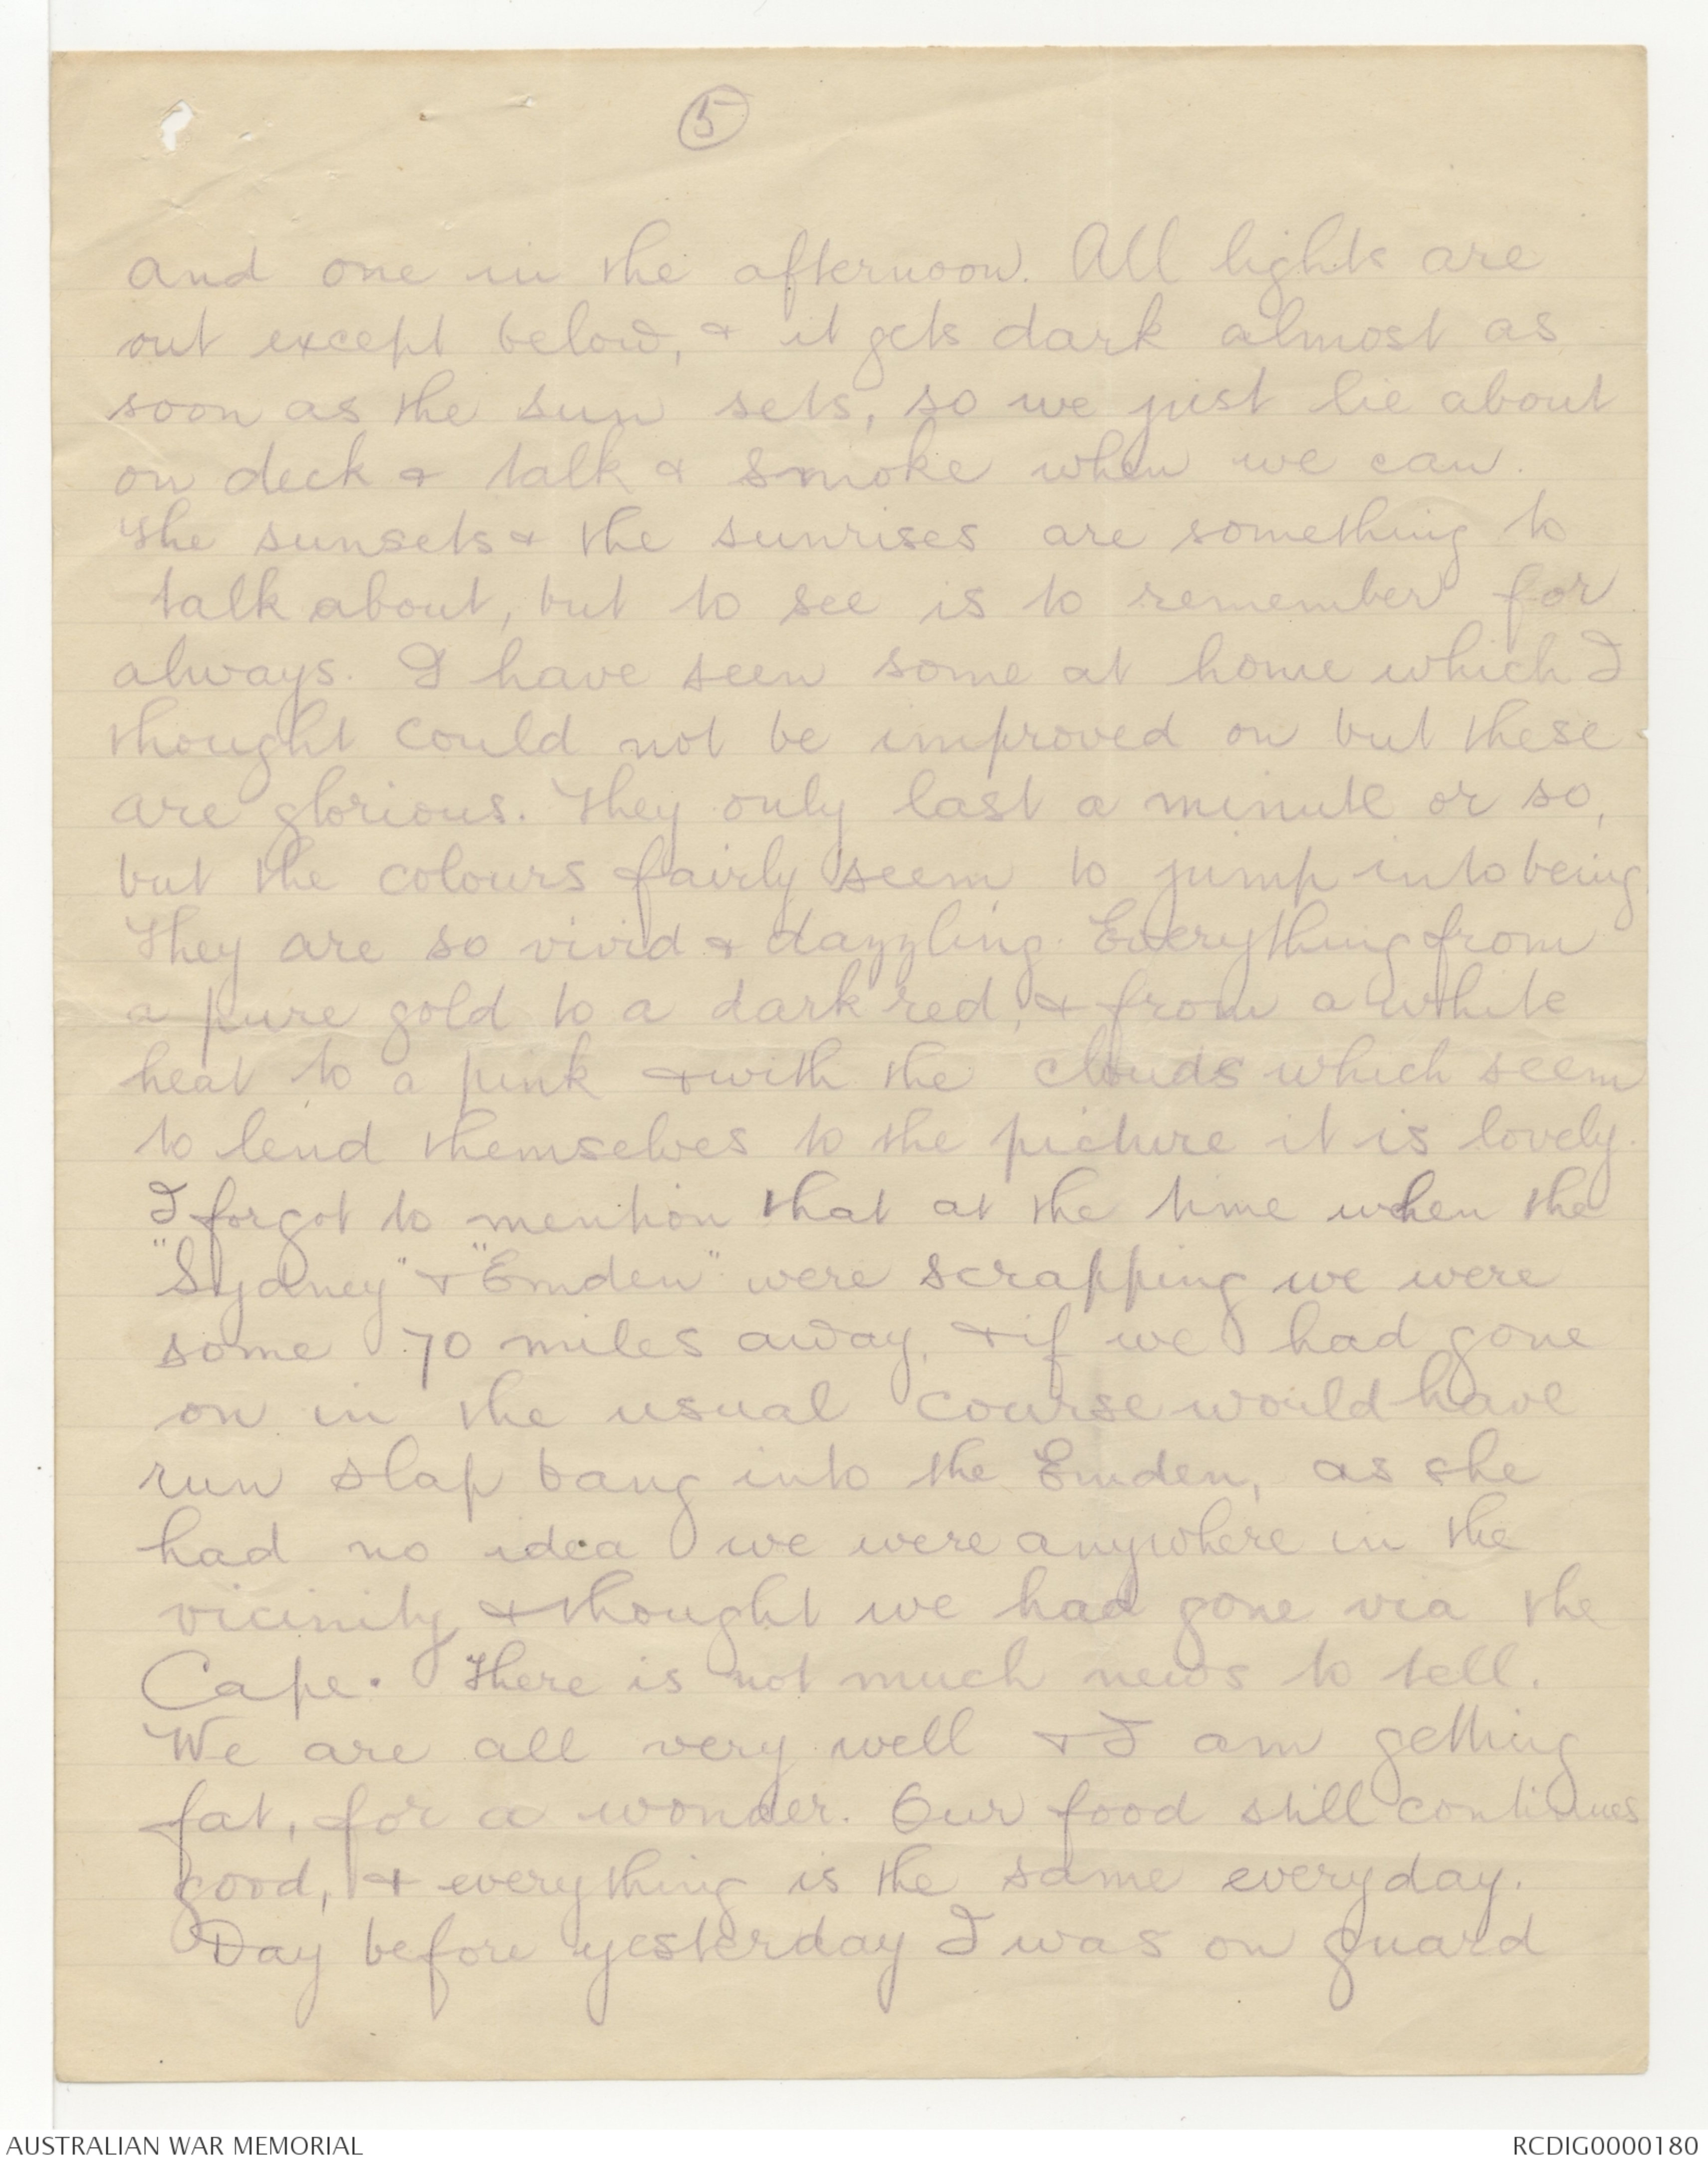 5
and one in the afternoon. All lights are
out except below, & it gets dark almost as
soon as the sun sets, so we just lie about
on deck & talk & smoke when we can.
The sunsets & the sunrises are something to
talk about, but to see is to remember for
always. I have seen some at home which I
thought could not be improved on but these
are glorious. They only last a minute or so,
but the colours fairly seem to jump into being
They are so vivid & dazzling. Everything from
a pure gold to a dark red, & from a white
heat to a pink & with the clouds which seem
to lend themselves to the picture it is lovely.
I forgot to mention that at the time when the
"Sydney" & "Emden" were scrapping we were
some 70 miles away, & if we had gone
on in the usual course would have
run slap bang into the Emden, as she
had no idea we were anywhere in the
vicinity & thought we had gone via the
Cape. There is not much news to tell.
We are all very well & I am getting
fat, for a wonder. Our food still continues
good, & everything is the same everyday.
Day before yesterday I was on guard
AUSTRALIAN WAR MEMORIAL
RCDIG0000180